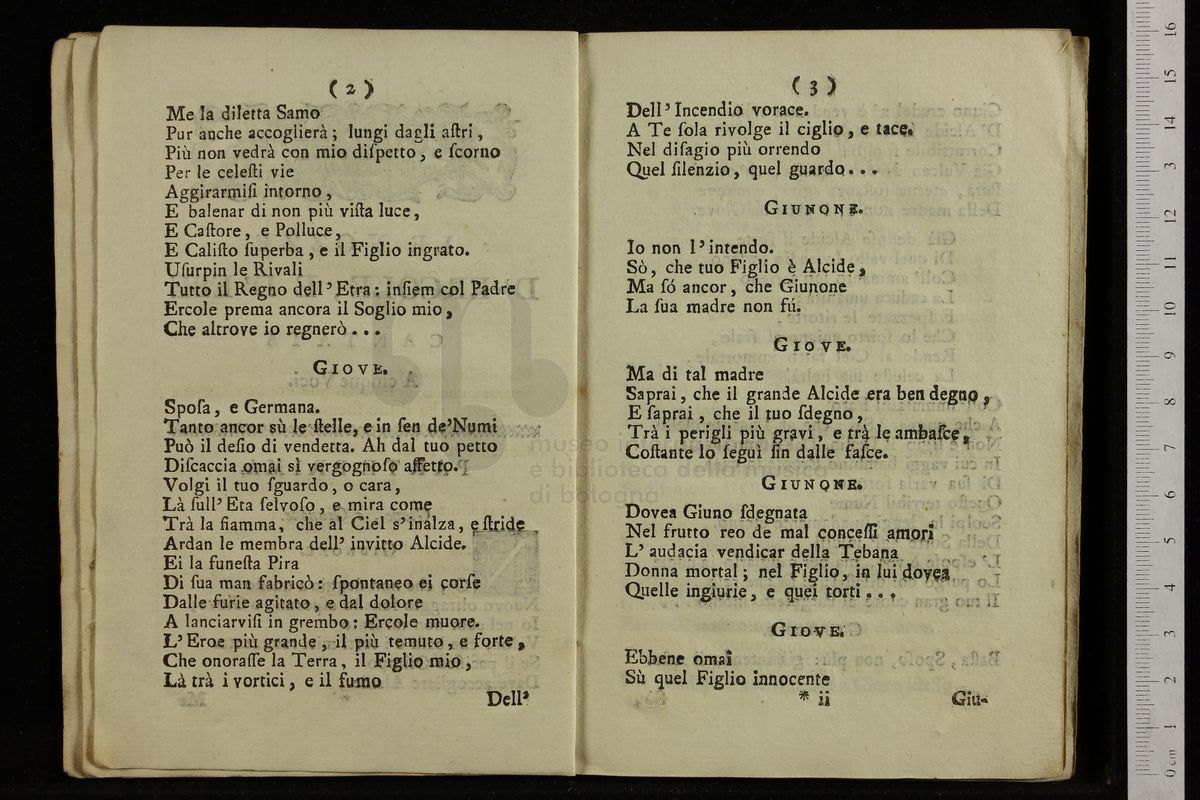 (2)
Me la diletta Samo
Pur anche accoglierà; lungi dagli aſtri,
Più non vedrà con mio diſpetto, e ſcorno
Per le celeſti vie
Aggirarmiſi intorno,
E balenar di non più viſta luce,
E Caſtore, e Polluce,
E Caliſto ſuperba, e il Figlio ingrato.
Uſurpin le Rivali
Tutto il Regno dell' Etra: inſiem col Padre
Ercole prema ancora il Soglio mio,
Che altrove io regnerò...
GIOVE.
Spoſa, e Germana.
Tanto ancor sù le ſtelle, e in ſen de'Numi
Può il deſio di vendetta. Ah dal tuo petto
Diſcaccia omai sì vergognoſo affetto.
Volgi il tuo ſguardo, o cara,
Là ſull' Eta ſelvoſo, e mira come
Trà la fiamma, che al Ciel s'inalza, e ſtride
Ardan le membra dell' invitto Alcide.
Ei la funeſta Pira
Di ſua man fabricò: ſpontaneo ei corſe
Dalle furie agitato, e dal dolore
A lanciarviſi in grembo: Ercole muore.
L' Eroe più grande, il più temuto, e forte,
Che onoraſſe la Terra, il Figlio mio,
Là trà i vortici, e il fumo
Dell'
(3)
Dell' Incendio vorace.
A Te ſola rivolge il ciglio, e tace.
Nel diſagio più orrendo
Quel ſilenzio, quel guardo...
GIUNONE.
Io non l'intendo.
Sò, che tuo Figlio è Alcide,
Ma ſó ancor, che Giunone
La ſua madre non fú.
GIOVE.
Ma di tal madre
Saprai, che il grande Alcide era ben degno,
E ſaprai, che il tuo ſdegno,
Trà i perigli più gravi, e trà le ambaſce,
Coſtante lo ſeguì ſin dalle faſce.
GIUNONE.
Dovea Giuno ſdegnata
Nel frutto reo de mal conceſſi amori
L' audacia vendicar della Tebana
Donna mortal; nel Figlio, in lui dovea
Quelle ingiurie, e quei torti...
GIOVE.
Ebbene omai
Sù quel Figlio innocente
* ii
Giu-
museo in
e biblioteca della musica
di bologna